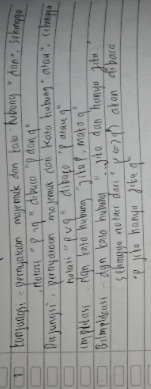 1 Konjungsi : pernyataan majemuk dan kata hubung "dan", sehingga
notasi "p ∧ q" dibaca "p dan q"
Disjungsi : pernyataan majemuk dan kata hubung "atau", sehingga
notasi "p ∨ q" dibaca "p atau q"
Implikasi dan kata hubung "jika p, maka q"
Biimplikasi dgn kata hubung "jika dan hanya jika"
sehingga notasi dari p⇔q akan dibaca
"p jika hanya jika q